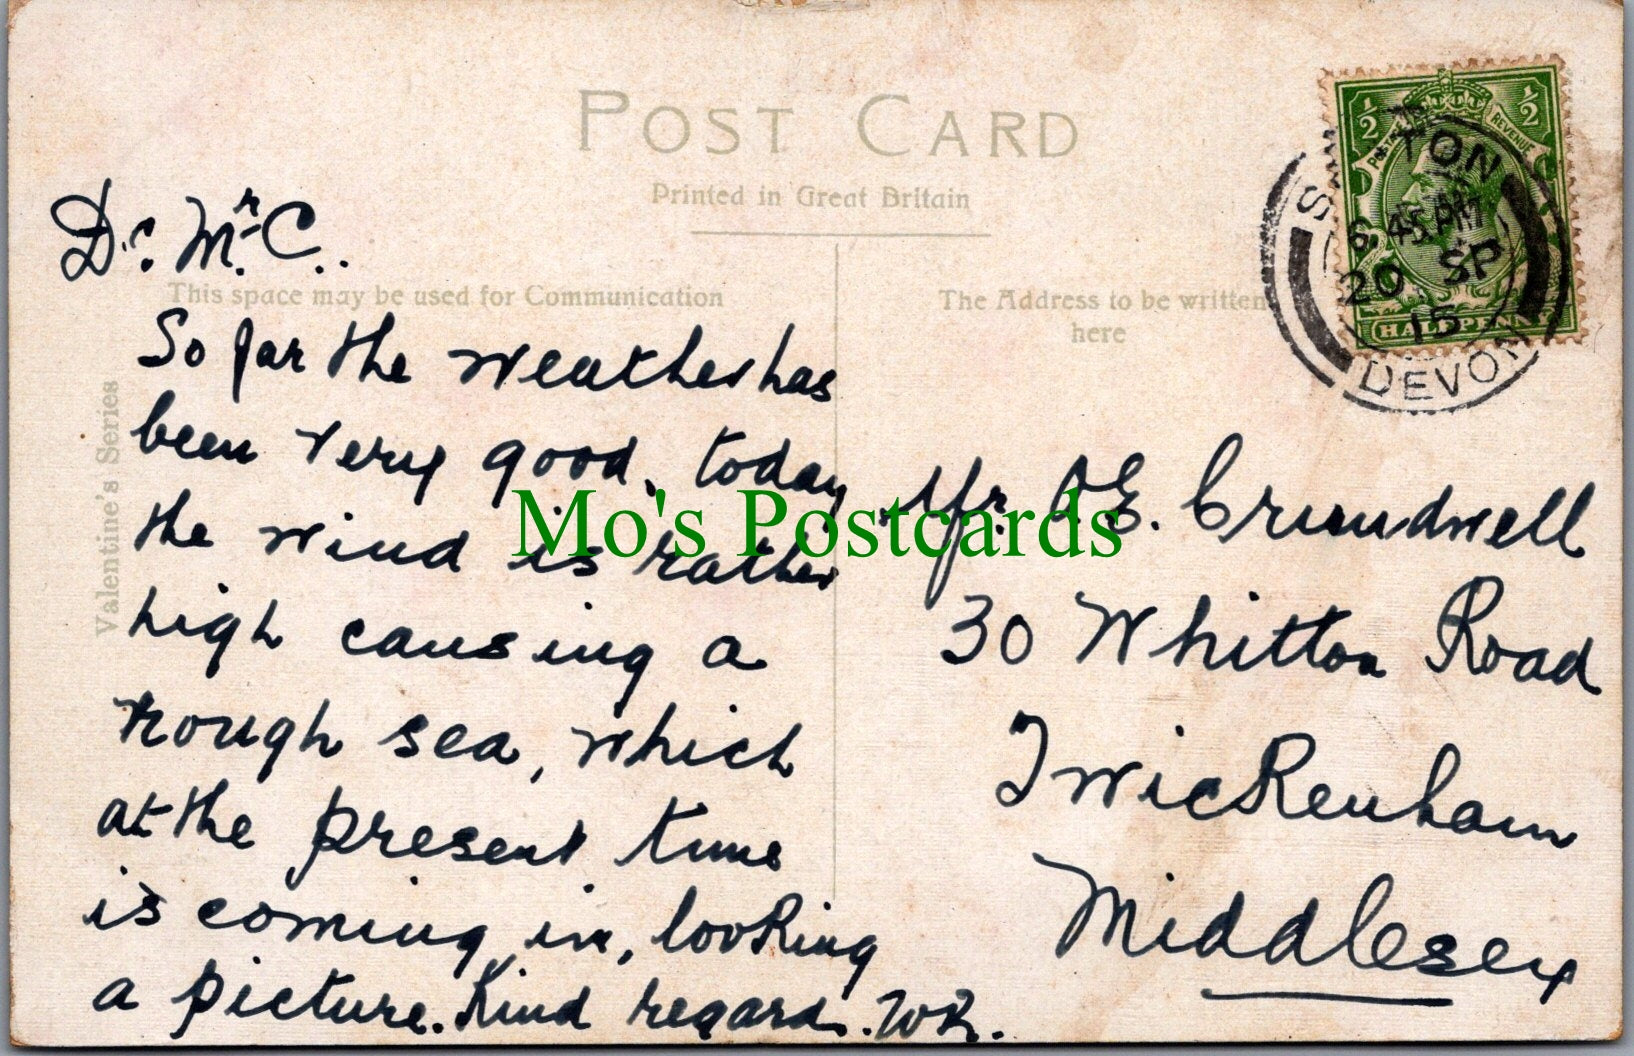 POST CARD
Printed in Great Britain
This space may be used for Communication
The Address to be written
here
Valentine's Series
Dr. Mr. C..
So far the weather has
been very good, today
the wind is rather
high causing a
rough sea, which
at the present time
is coming in, looking
a picture. Kind regards. WR.
Mr. A.E. Crundwell
30 Whitton Road
Twickenham
Middlesex
1/2
1/2
POSTAGE
REVENUE
HALFPENNY
TON
6.45 PM
20 SP
15
DEVON
Mo's Postcards